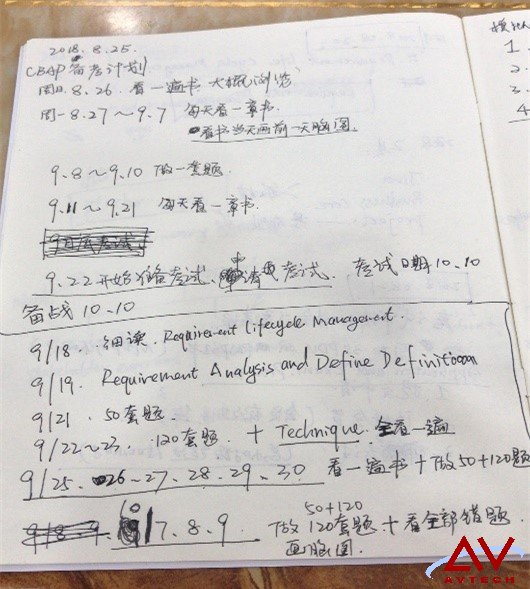 2018.8.25.
CBAP 备考计划
周日 8.26. 看一遍书 大概浏览
周一 8.27～9.7 每天看一章书.
看书当天画前一天脑图.
9.8～9.10 做一套题.
9.11～9.21 每天看一章书.
9月底考试
9.22 开始准备考试. 申请考试. 考试日期 10.10
备战 10.10
9/18. 细读. Requirement Lifecycle Management.
9/19. Requirement Analysis and Define Definition
9/21 .50套题.
9/22～23. 120套题. + Technique. 全看一遍
9/25. 26～27. 28. 29. 30 看一遍书+做50+120题
50+120
7.8.9 做120套题+看全部错题
画脑图.
1.
2.
3.
4
AV
AVTECH